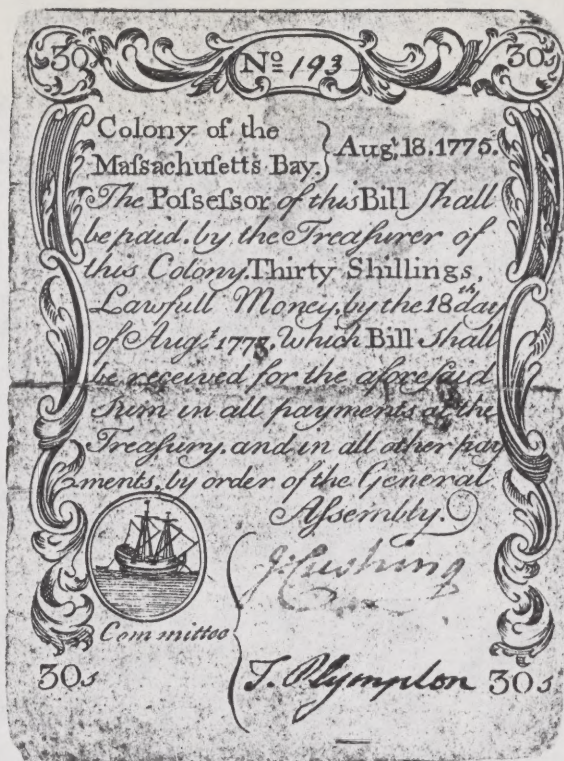 30 Nº 193 30
Colony of the
Maſsachuſetts Bay. } Augᵗ. 18. 1775.
The Poſseſsor of this Bill ſhall
be paid. by the Treaſurer of
this Colony. Thirty Shillings,
Lawfull Money. by the 18ᵗʰ day
of Augᵗ. 1778. which Bill ſhall
be received for the aforeſaid
Sum in all payments at the
Treaſury. and in all other pay
ments. by order of the General
Aſsembly.
J Cushing
Committee
30s T. Plympton 30s